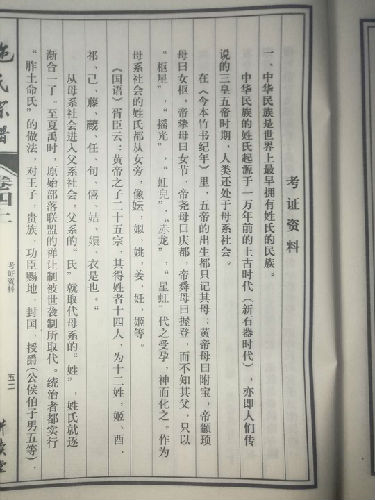 考证资料
一、中华民族是世界上最早拥有姓氏的民族。
中华民族的姓氏起源于一万年前的上古时代（新石器时代），亦即人们传
说的三皇五帝时期，人类还处于母系社会。
在《今本竹书纪年》里，五帝的出生都只记其母：黄帝母曰附宝，帝颛顼
母曰女枢，帝喾母曰女节，帝尧母曰庆都，帝舜母曰握登，而不知其父，只以
“枢星”，“摇光”，“虹皃”，“赤龙”，“星虹”代之受孕，神而化之。作为
母系社会的姓氏都从女旁，像妘、姒、姚、姜、妊、姬等。
《国语》胥臣云：黄帝之子二十五宗，其得姓者十四人，为十二姓。姬、酉、
祁、己、滕、葴、任、旬、僖、姞、嬛、衣是也。”
从母系社会进入父系社会，父系的。氏”就取代母系的。姓”，姓氏就逐
渐合一了。至夏禹时，原始部落联盟的禅让制被世袭制所取代。统治者都实行
“胙土命氏”的做法，对王子、贵族、功臣赐地、封国、授爵（公侯伯子男五等），
氏宗谱
卷四十
考证资料
五二